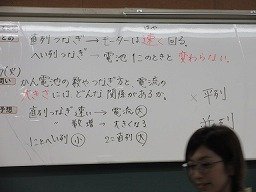 直列つなぎ→モーターは速く回る。
へい列つなぎ→電池1このときと変わらない。
かん電池の数やつなぎ方と電流の
大きさにはどんな関係があるか。
予想
直列つなぎ 速い→電流大
数 増→大きくなる
1こ 小
2こ直列 大
× 平列
並列